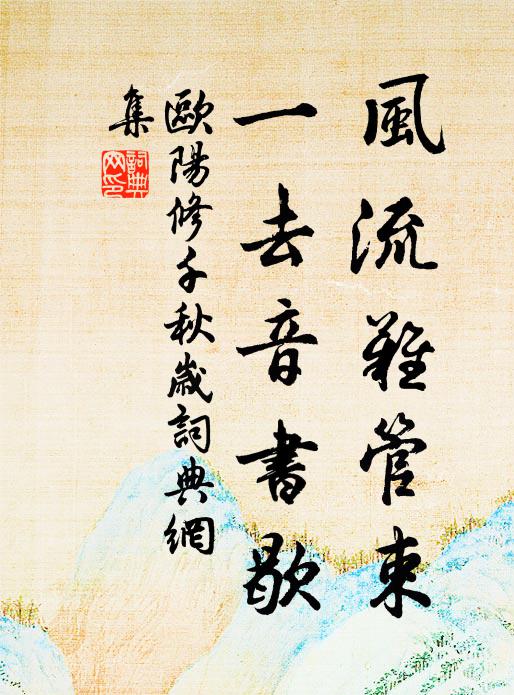 風流難管束
一去音書歇
歐陽修千秋歲詞典網
集
詞典
网印